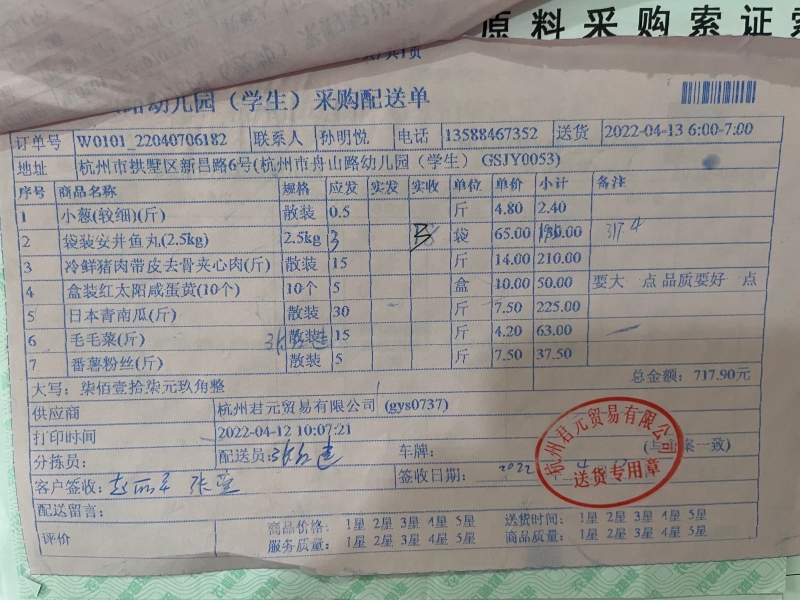 原料采购索证
共1页
幼儿园（学生）采购配送单
订单号 W0101_22040706182 联系人 孙明悦 电话 13588467352 送货 2022-04-13 6:00-7:00
地址 杭州市拱墅区新昌路6号(杭州市舟山路幼儿园（学生） GSJY0053)
序号 商品名称 规格 应发 实发 实收 单位 单价 小计 备注
1 小葱(较细)(斤) 散装 0.5 斤 4.80 2.40
2 袋装安井鱼丸(2.5kg) 2.5kg 3 3 袋 65.00
3 冷鲜猪肉带皮去骨夹心肉(斤) 散装 15 斤 14.00 210.00
4 盒装红太阳咸蛋黄(10个) 10个 5 盒 10.00 50.00 要大 点 品质要好 点
5 日本青南瓜(斤) 散装 30 斤 7.50 225.00
6 毛毛菜(斤) 散装 15 斤 4.20 63.00
7 番薯粉丝(斤) 散装 5 斤 7.50 37.50
大写：柒佰壹拾柒元玖角整 总金额：717.90元
供应商 杭州君元贸易有限公司 (gys0737)
打印时间 2022-04-12 10:07:21
分拣员： 配送员： 车牌：
客户签收： 签收日期： 2022
配送留言：
评价 商品价格： 1星 2星 3星 4星 5星 送货时间： 1星 2星 3星 4星 5星
服务质量： 1星 2星 3星 4星 5星 商品质量： 1星 2星 3星 4星 5星
杭州君元贸易有限公司
送货专用章